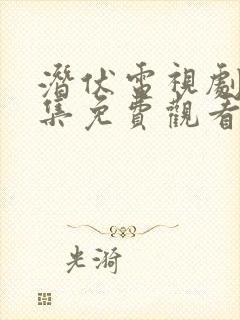 潛伏電視劇
集免費觀看
光漪